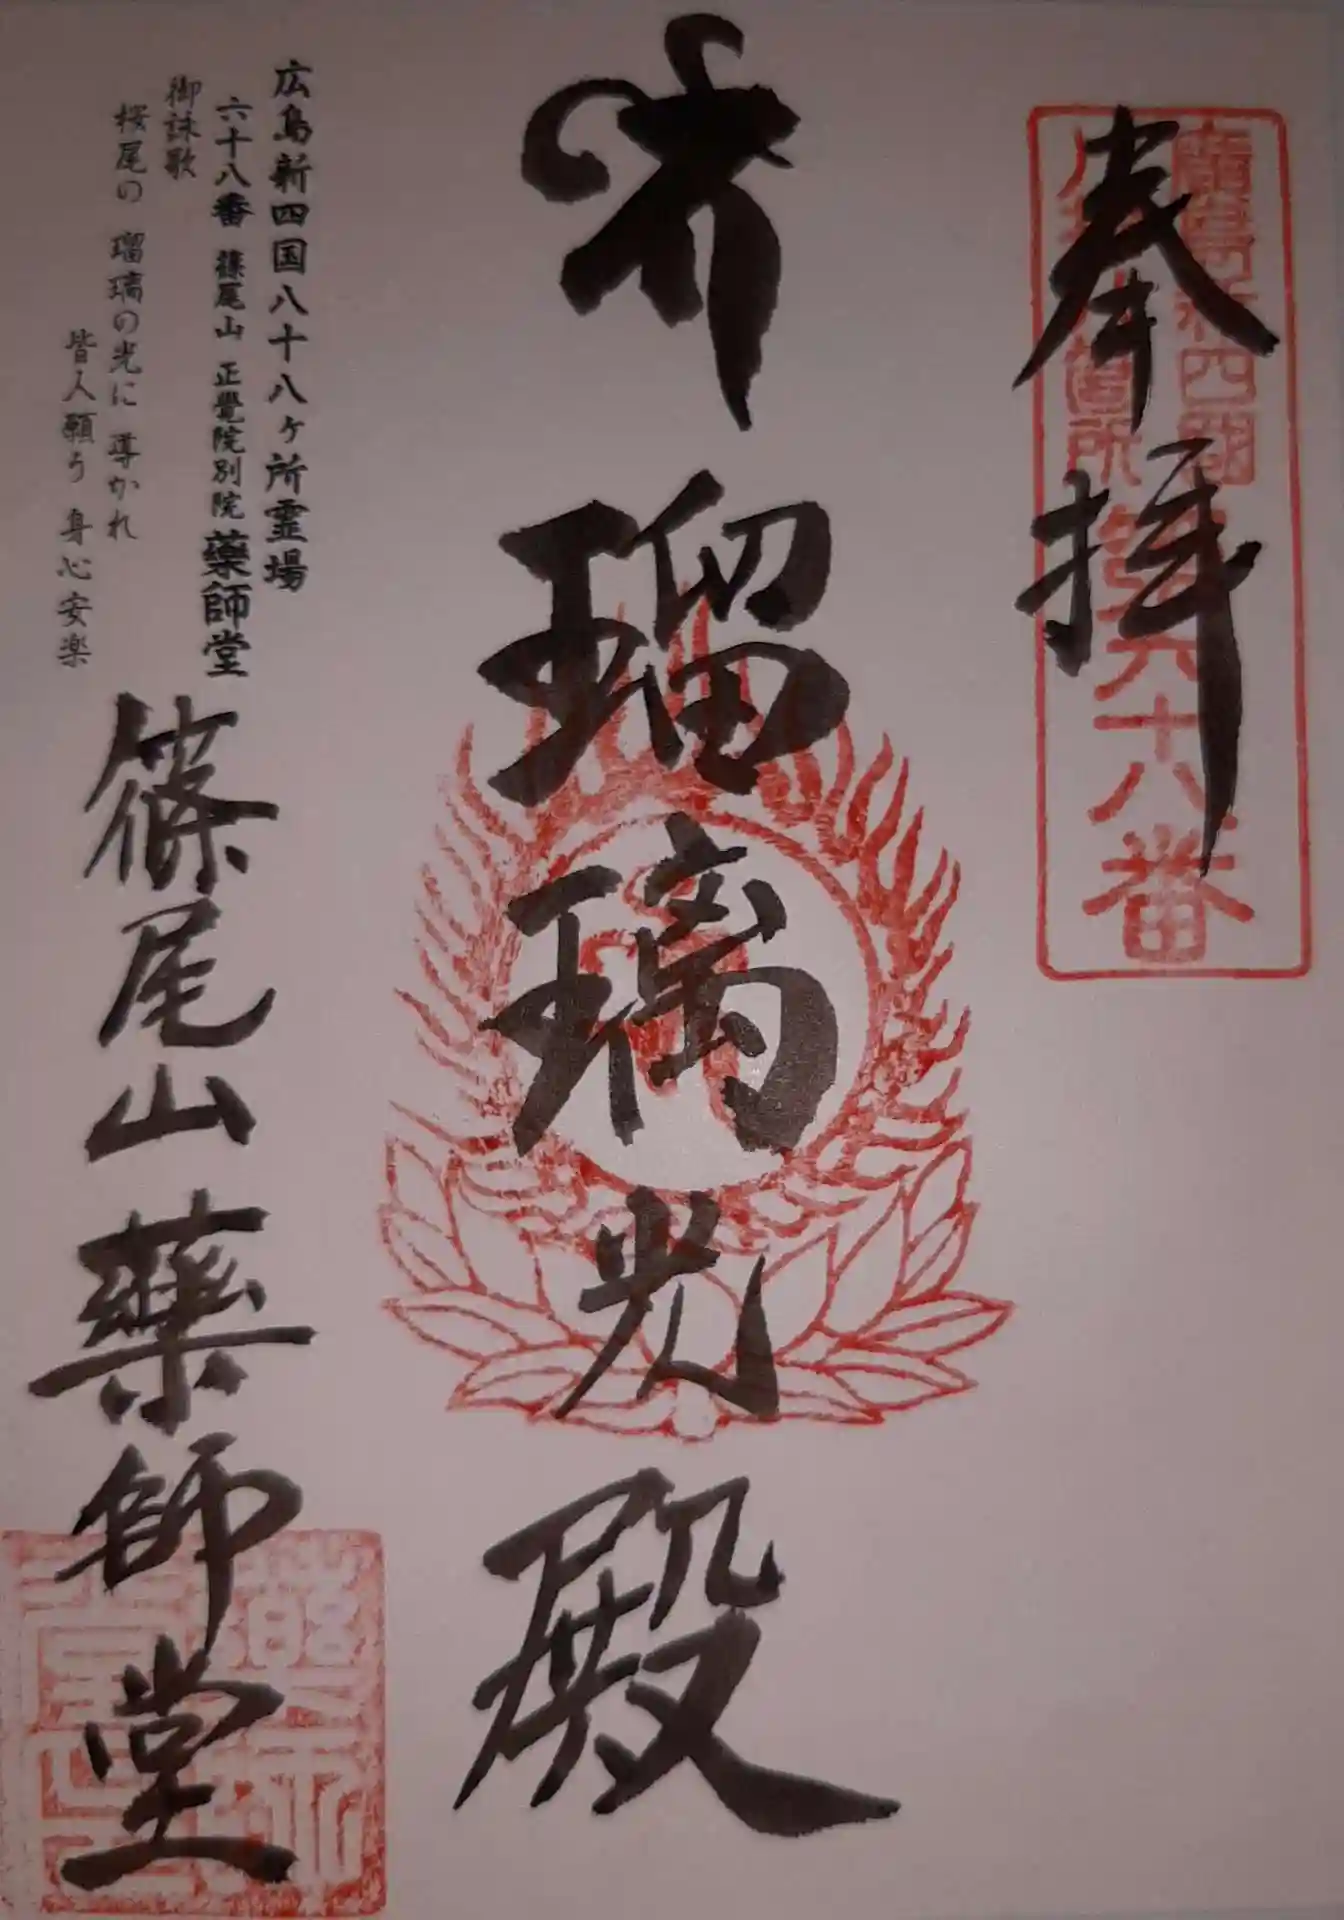 奉拝
廣島新四國
八十八箇所
第六十八番
瑠璃光殿
広島新四国八十八ヶ所霊場
六十八番 篠尾山 正覺院別院 藥師堂
御詠歌
桜尾の 瑠璃の光に 導かれ
皆人願う 身心安楽
篠尾山 藥師堂